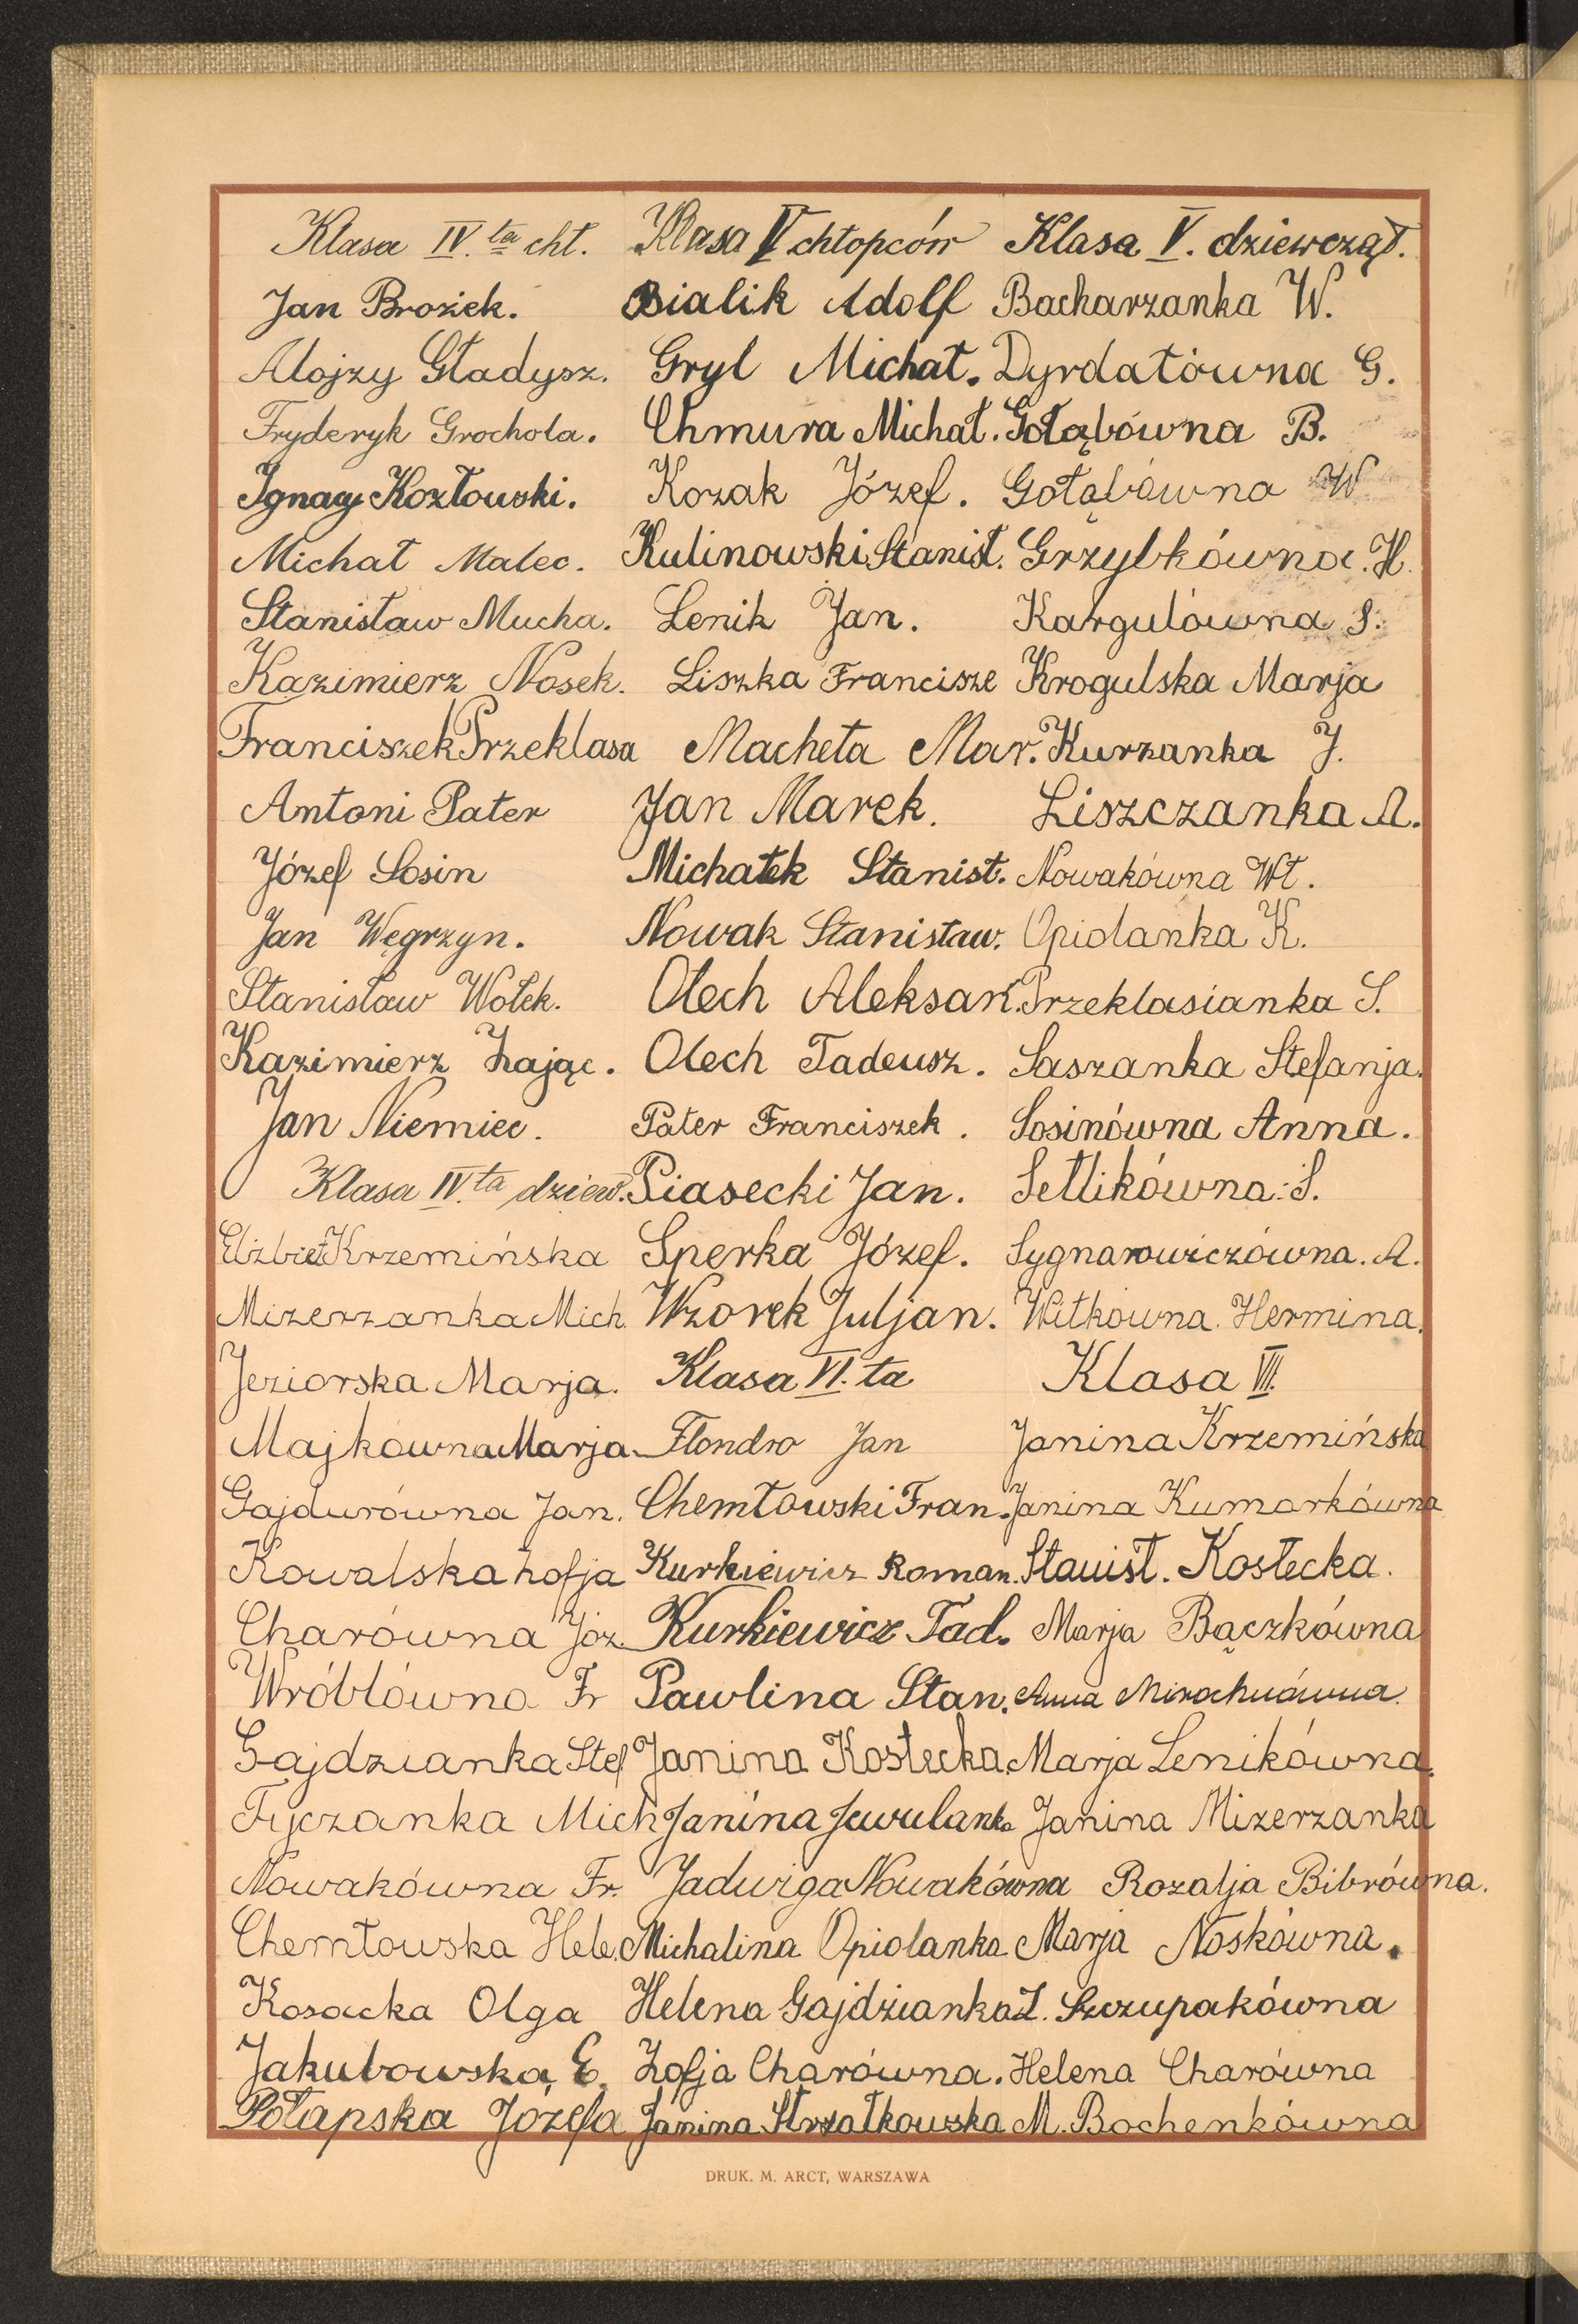 Klasa IV.ta chł.
Jan Brożek.
Alojzy Gładysz.
Fryderyk Grochola.
Ignacy Kozłowski.
Michał Malec.
Stanisław Mucha.
Kazimierz Nosek.
Franciszek Przeklasa
Antoni Pater
Józef Sosin
Jan Węgrzyn.
Stanisław Wołek.
Kazimierz Zając.
Jan Niemiec.
Klasa IV.ta dziew.
Elżbiet Krzemińska
Mizerzanka Mich.
Jeziorska Marja.
Majkówna Marja
Gajdurówna Jan.
Kowalska Zofja
Charówna Józ.
Wróblówna Fr
Gajdzianka Stef
Fyczanka Mich
Nowakówna Fr.
Chemłowska Hele.
Kosacka Olga
Jakubowska E.
Połapska Józefa
Klasa V chłopców
Bialik Adolf
Gryl Michał.
Chmura Michał.
Kozak Józef.
Kulinowski Stanisł.
Lenik Jan.
Liszka Francisze
Macheta Mar.
Jan Marek.
Michałek Stanisł.
Nowak Stanisław.
Olech Aleksan.
Olech Tadeusz.
Pater Franciszek.
Piasecki Jan.
Sperka Józef.
Wzorek Juljan.
Klasa VI.ta
Flondro Jan
Chemłowski Fran.
Kurkiewicz Roman.
Kurkiewicz Tad.
Pawlina Stan.
Janina Kostecka.
Janina Jewulanka
Jadwiga Nowakówna
Michalina Opiolanka
Helena Gajdzianka
Zofja Charówna.
Janina Strzałkowska
Klasa V. dziewcząt.
Bacharzanka W.
Dyrdałówna G.
Gołąbówna B.
Gołąbówna W
Grzybkówna. H.
Kargulówna S.
Krogulska Marja
Kurzanka J.
Liszczanka A.
Nowakówna Wł.
Opiolanka K.
Przeklasianka S.
Saszanka Stefanja.
Sosinówna Anna.
Setlikówna S.
Sygnarowiczówna. A.
Witkówna. Hermina.
Klasa VII.
Janina Krzemińska
Janina Kumorkówna
Stanisł. Kostecka.
Marja Bączkówna
Anna Mirochnówna.
Marja Lenikówna.
Janina Mizerzanka
Rozalja Bibrówna.
Marja Noskówna.
Z. Szczupakówna
Helena Charówna
M. Bochenkówna
DRUK. M. ARCT, WARSZAWA